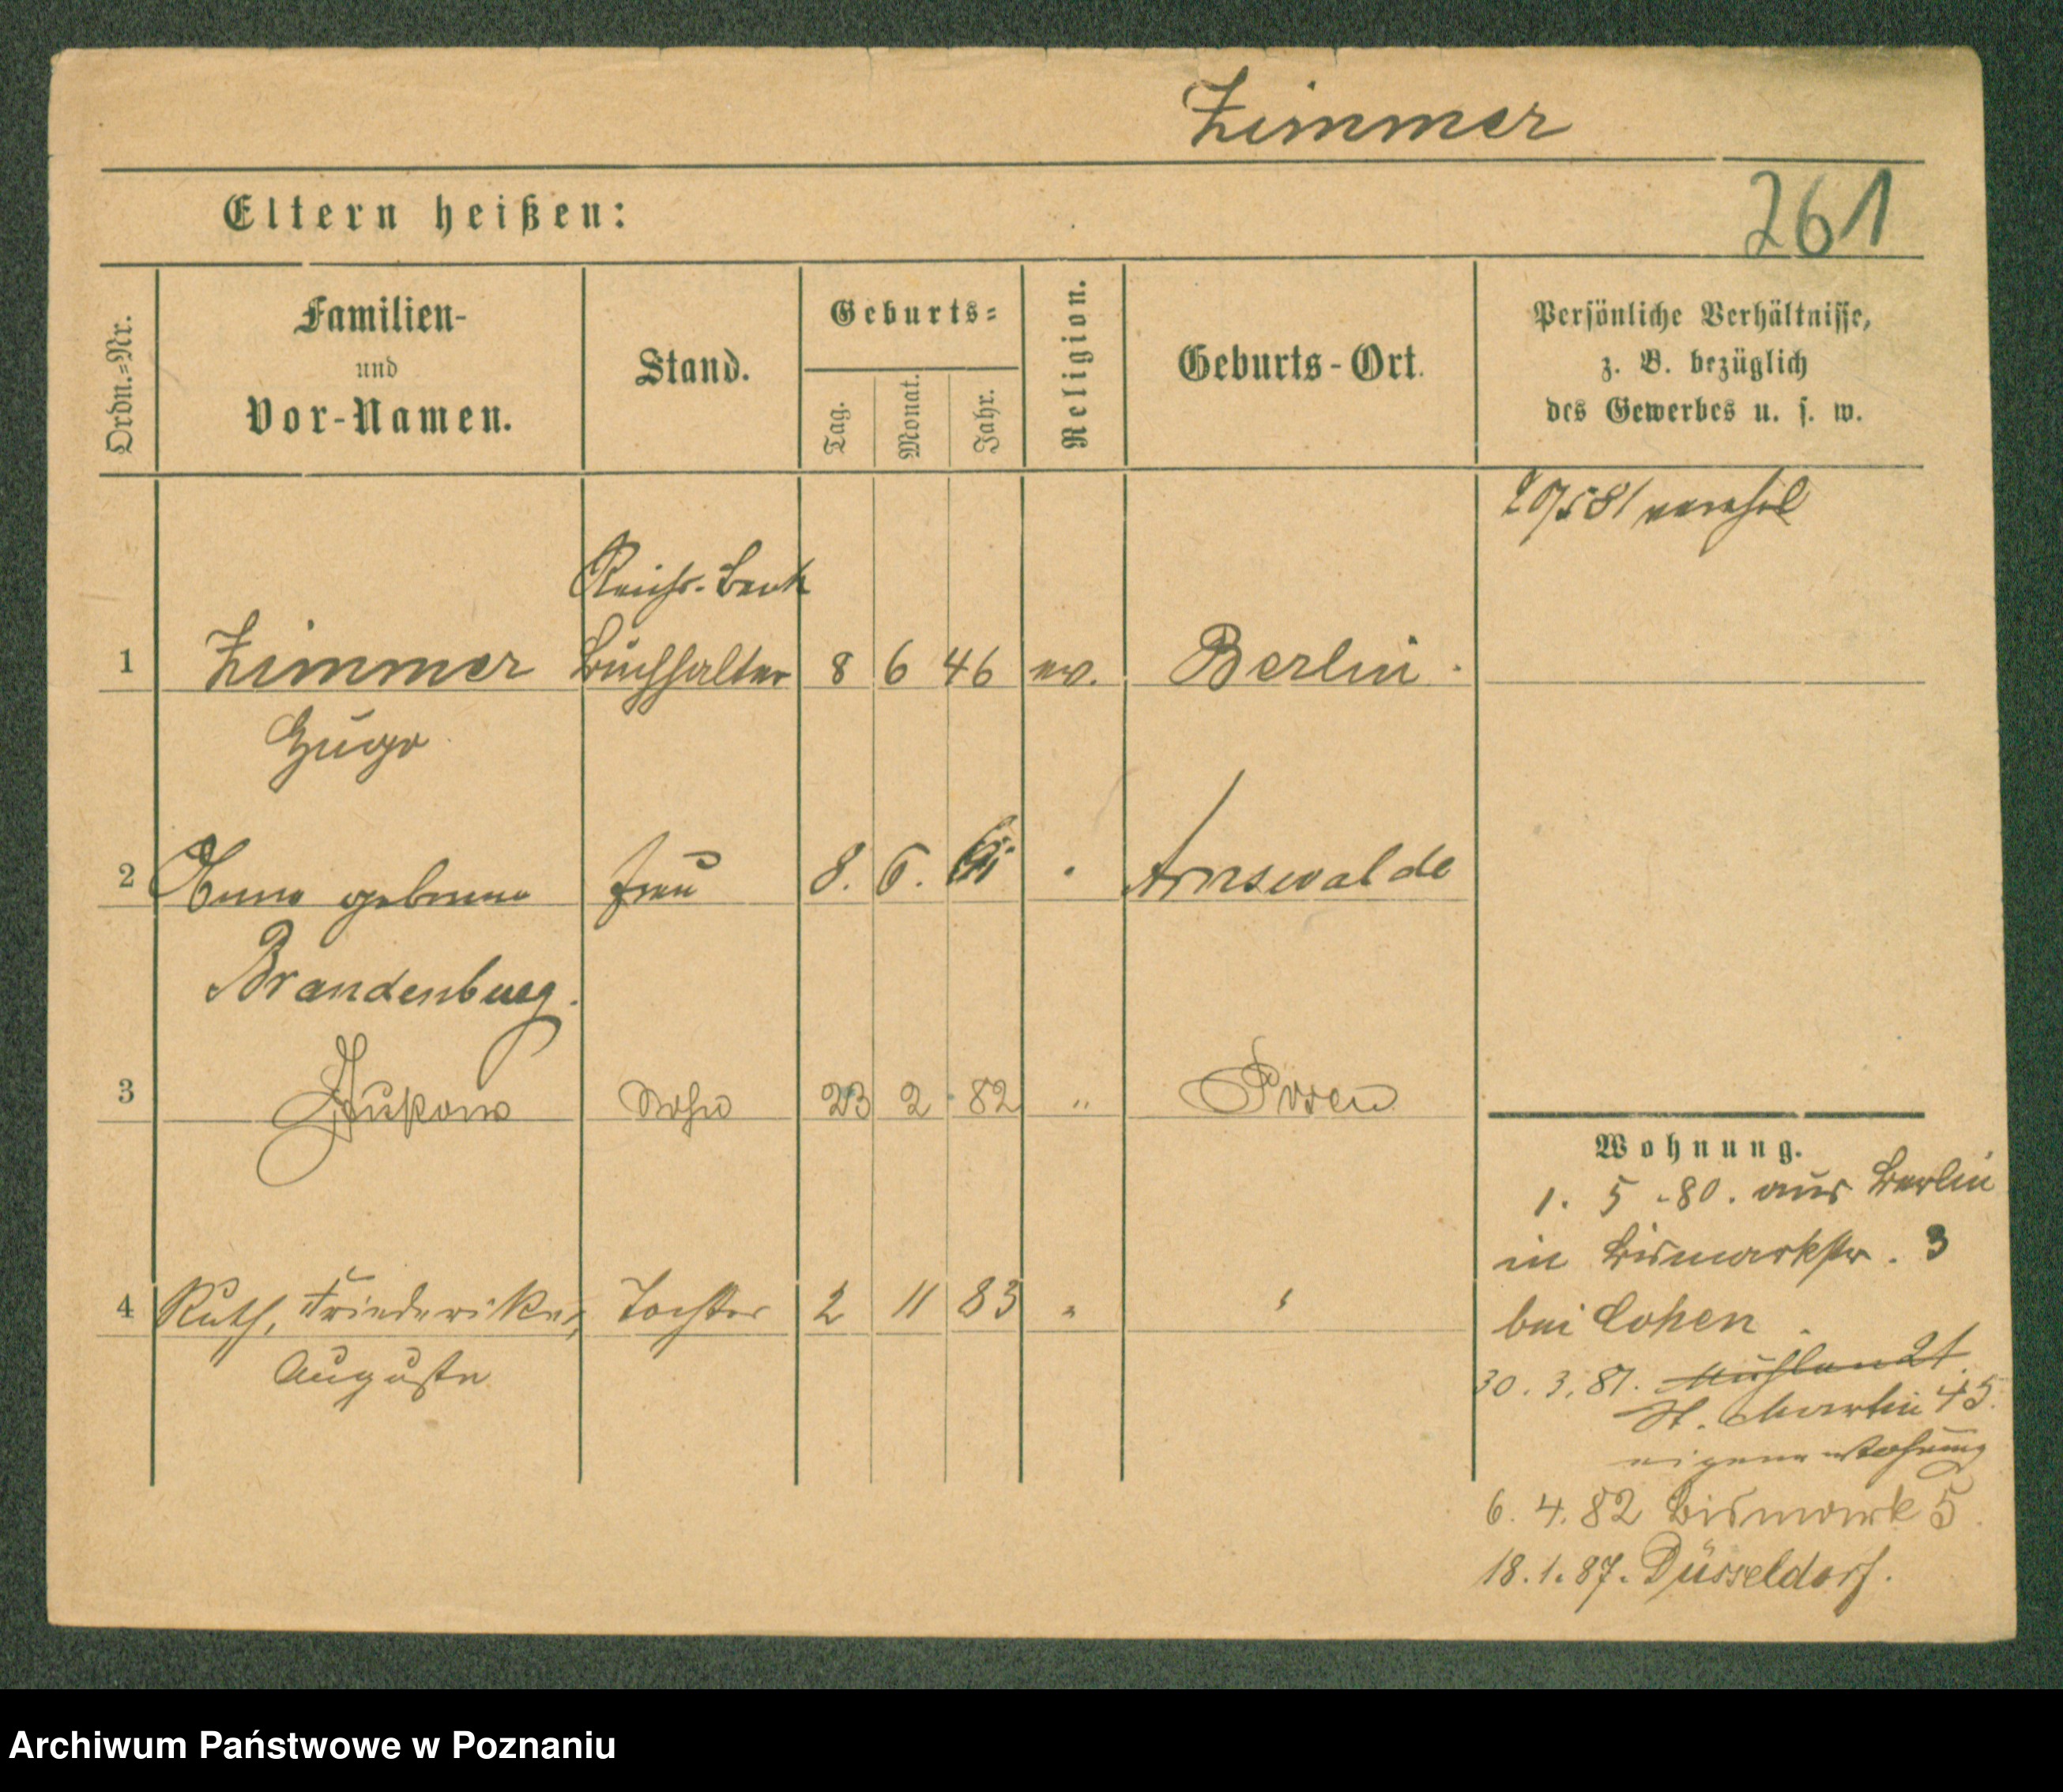 Zimmer
261
Eltern heißen:
Ordn.=Nr.
Familien-
und
Vor-Namen.
Stand.
Geburts=
Tag.
Monat.
Jahr.
Religion.
Geburts-Ort.
Persönliche Verhältnisse,
z. B. bezüglich
des Gewerbes u. s. w.
20/5 81 vereh
Reichs-Bank
1 Zimmer Buchhalter 8 6 46 ev. Berlin.
Hugo
2 Anna geborene Frau 8. 6. Arnswalde
Brandenburg.
3 Sohn 23 2 82 " Posen
4 Ruth, Friederike, Tochter 2 11 83 "
Auguste
Wohnung.
1. 5. 80. aus Berlin
in Bismarkstr. 3
bei Cohen.
30. 3. 81. Mühlen 21
St. Martin 45.
eigene Wohnung
6. 4. 82 Bismark 5.
18. 1. 87. Düsseldorf.
Archiwum Państwowe w Poznaniu